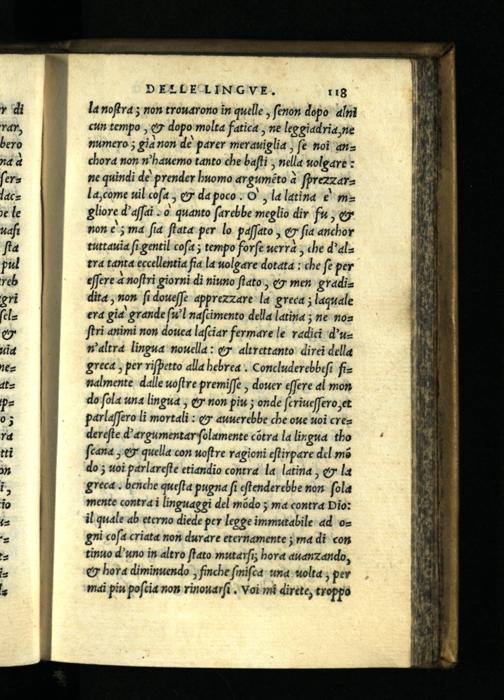 DELLE LINGVE. 118
la nostra; non trouarono in quelle, senon dopo alni
cun tempo, & dopo molta fatica, ne leggiadria, ne
numero; già non de' parer merauiglia, se noi an=
chora non n'hauemo tanto che basti, nella volgare:
ne quindi de' prender huomo argumẽto à sprezzar=
la, come uil cosa, & da poco. O`, la latina è mi=
gliore d'assai. o quanto sarebbe meglio dir fu, &
non è; ma sia stata per lo passato, & sia anchor
tuttauia si gentil cosa; tempo forse uerrà, che d'al=
tra tanta eccellentia fia la volgare dotata: che se per
essere à nostri giorni di niuno stato, & men gradi=
dita, non si douesse apprezzare la greca; laquale
era già grande su'l nascimento della latina; ne no=
stri animi non douea lasciar fermare le radici d'u=
n'altra lingua nouella: & altrettanto direi della
greca, per rispetto alla hebrea. Concluderebbesi fi=
nalmente dalle uostre premisse, douer essere al mon
do sola una lingua, & non piu; onde scriuessero, et
parlassero li mortali: & auuerebbe che oue uoi cre=
dereste d'argumentar solamente cõtra la lingua tho
scana, & quella con uostre ragioni estirpare del mõ
do; uoi parlareste etiandio contra la latina, & la
greca. benche questa pugna si estenderebbe non sola
mente contra i linguaggi del mõdo; ma contra Dio:
il quale ab eterno diede per legge immutabile ad o=
gni cosa criata non durare eternamente; ma di con
tinuo d'uno in altro stato mutarsi; hora auanzando,
& hora diminuendo, finche finisca una uolta, per
mai piu poscia non rinouarsi. Voi mi direte, troppo